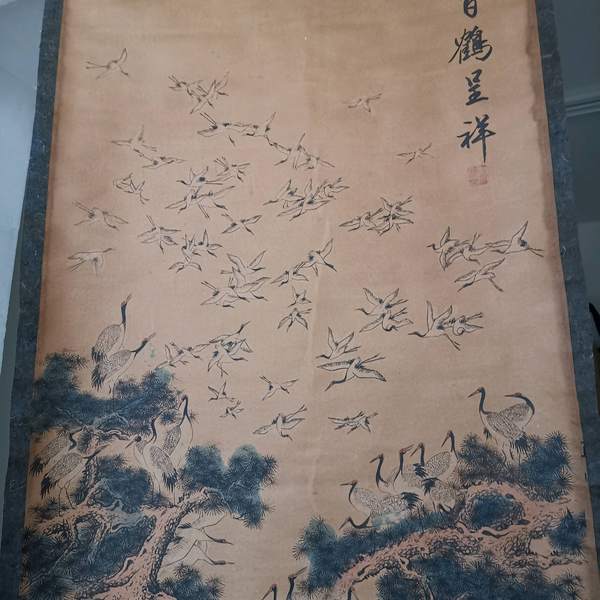 百鶴呈祥